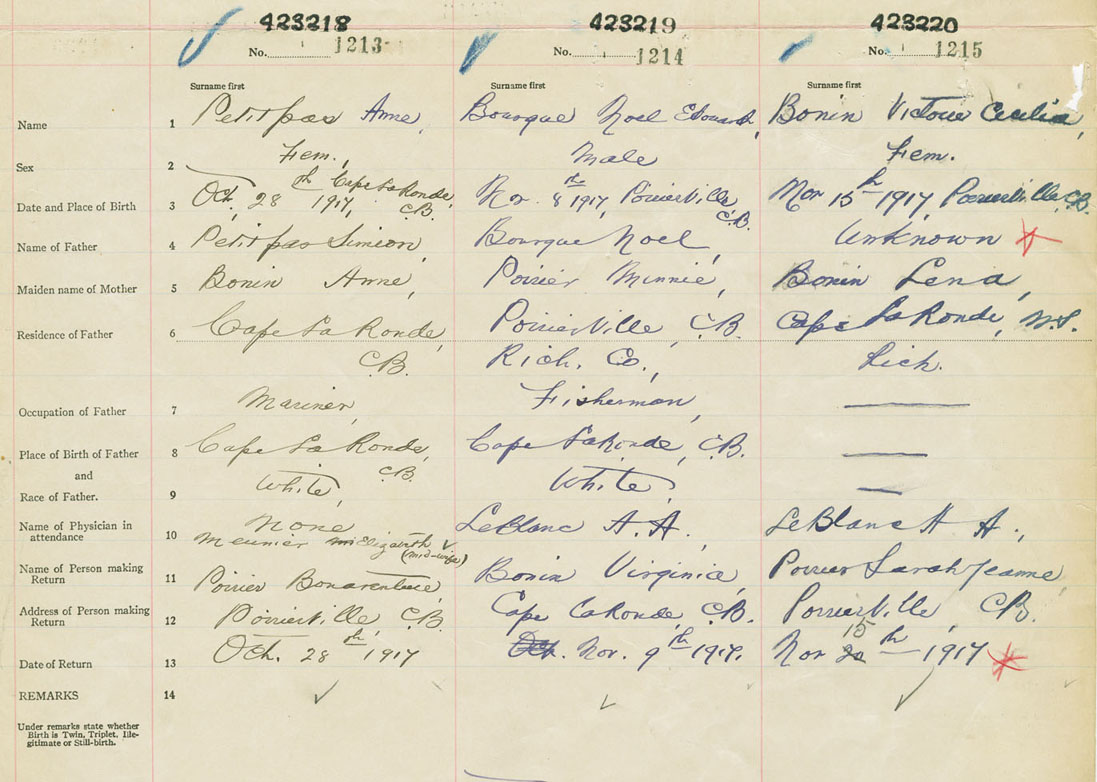 423218 423219 423220
No. 1213 No. 1214 No. 1215
Surname first Surname first Surname first
Name 1 Petitpas Anne, Bourque Noel Edouard, Bonin Victorie Cecilia,
Sex 2 Fem., Male Fem.
Date and Place of Birth 3 Oct, 28th 1917, Cape LaRonde, C.B. Nov. 8th 1917, PoirierVille, C.B. Nov 15th 1917, PoirierVille, C.B.
Name of Father 4 Petitpas Simion, Bourque Noel, Unknown
Maiden name of Mother 5 Bonin Anne, Poirier Minnie, Bonin Lena,
Residence of Father 6 Cape LaRonde, PoirierVille, C.B. Cape LaRonde, N.S.
C.B. Rich. Co., Rich.
Occupation of Father 7 Mariner, Fisherman,
Place of Birth of Father 8 Cape LaRonde, C.B. Cape LaRonde, C.B.
and
Race of Father. 9 White, White,
Name of Physician in attendance 10 None LeBlanc A. A. LeBlanc A A.,
Meunier Elizabeth (mid-wife)
Name of Person making Return 11 Poirier Bonaventure, Bonin Virginie, Poirier Sarah Jeanne,
Address of Person making Return 12 PoirierVille, C.B. Cape LaRonde, C.B. PoirierVille, C.B.
Date of Return 13 Oct. 28th 1917 Oct. Nov. 9th 1917. Nov 15 th 1917
REMARKS 14
Under remarks state whether
Birth is Twin, Triplet, Ille-
gitimate or Still-birth.